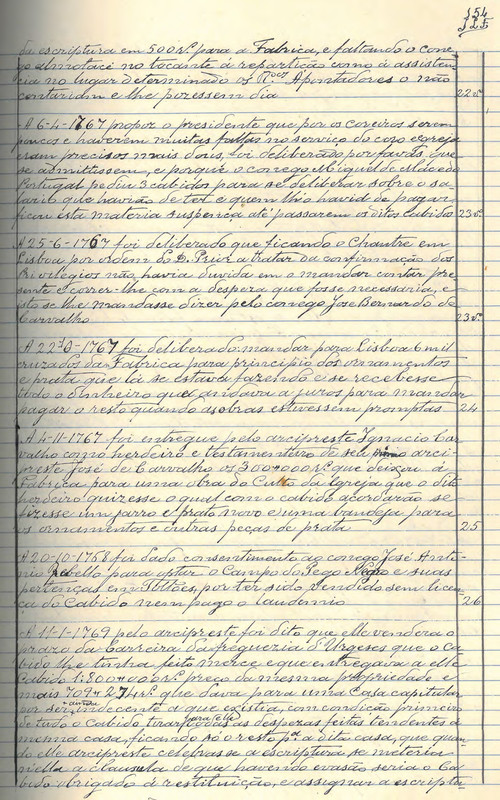 154
da escriptura em 500 rs. para a Fabrica, e faltando o cone-
go almotacé no tocante á repartição como á assisten-
cia no lugar determinado os Apontadores o não
contariam e lhe pozessem dia
22vº
A 6-4-1767 propoz o presidente que por os coreiros serem
poucos e haverem muitas faltas no serviço do coro e egreja
eram precisos mais dous, foi deliberado por favas que
se admittissem, e porque o conego Miguel de Macedo
Portugal pediu 3 cabidos para se deliberar sobre o sa-
lario que haviam de ter e quem lh'o havia de pagar
ficou esta materia suspença até passarem os ditos Cabidos
23vº
A 25-6-1767 foi deliberado que ficando o Chantre em
Lisboa por ordem do D. Prior a tratar da confirmação dos
Privilegios não havia duvida em o mandar contar pre-
sente e correr-lhe com a despera que fosse necessaria, e
isto se lhe mandasse dizer pelo conego José Bernardo de
Carvalho
23vº
A 22-10-1767 foi deliberado mandar para Lisboa 6 mil
cruzados da Fabrica para principio dos ornamentos
e prata que lá se estava fazendo e se recebesse
todo o dinheiro que andava a juros para mandar
pagar o resto quando as obras estivessem promptas
24
A 4-11-1767 foi entregue pelo arcipreste Ignacio Car-
valho como herdeiro e testamenteiro de seu primo arci-
preste José de Carvalho os 300#000 rs. que deixou á
Fabrica para uma obra do Culto da Egreja que o dito
herdeiro quizesse o qual com o cabido acordarão se
fizesse um jarro e prato novo e uma bandeja para
os ornamentos e outras peças de prata
25
A 20-10-1768 foi dado consentimento ao conego José Anto-
nio Rebello para optar o Campo do Pego Negro e suas
pertenças em Toldões, por ter sido vendido sem licen-
ça do Cabido nem pago o laudemio
26
A 11-1-1769 pelo arcipreste foi dito que elle vendera o
prazo da Carreira da freguezia d'Urgeses que o Ca-
bido lhe tinha feito mercê e que entregava a elle
Cabido 1:800#000 rs. preço da mesma propriedade e
mais 709#274 rs. que dava para uma Casa capitular
por ser indecente a que existia, com condição primeiro
de tudo o Cabido tirar para elle todas as despezas feitas tendentes á
mesma casa, ficando só o resto pa. a dita casa, que quan-
do elle arcipreste celebrasse a escriptura se meteria
n'ella a clausula de que havendo evasão seria o Ca-
bido obrigado á restituição, e assignar a escriptu-